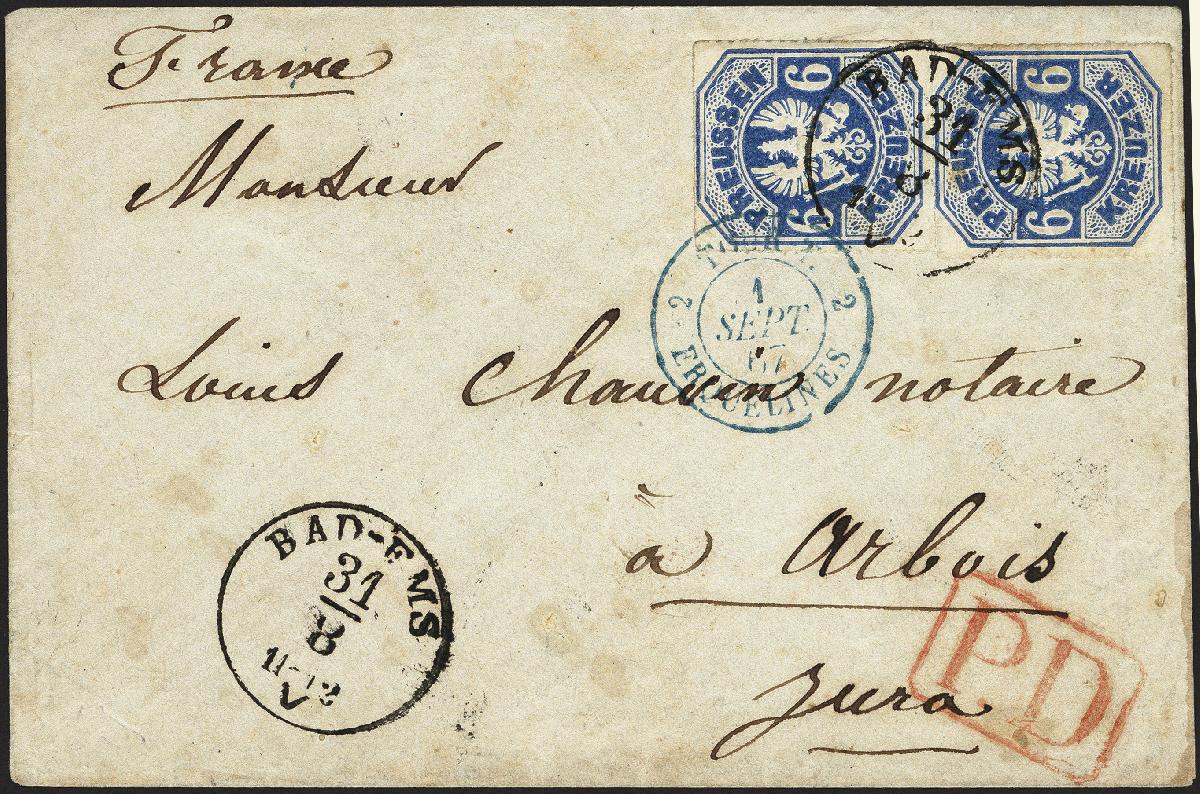 France
Monsieur
Louis Chauvin notaire
à Arbois
Jura
9
PREUSSEN
KREUZER
9
9
PREUSSEN
KREUZER
9
BAD-EMS
31
8
2 2
1
SEPT.
67
ERQUELINES
BAD-EMS
31
8
11-12
V
P.D